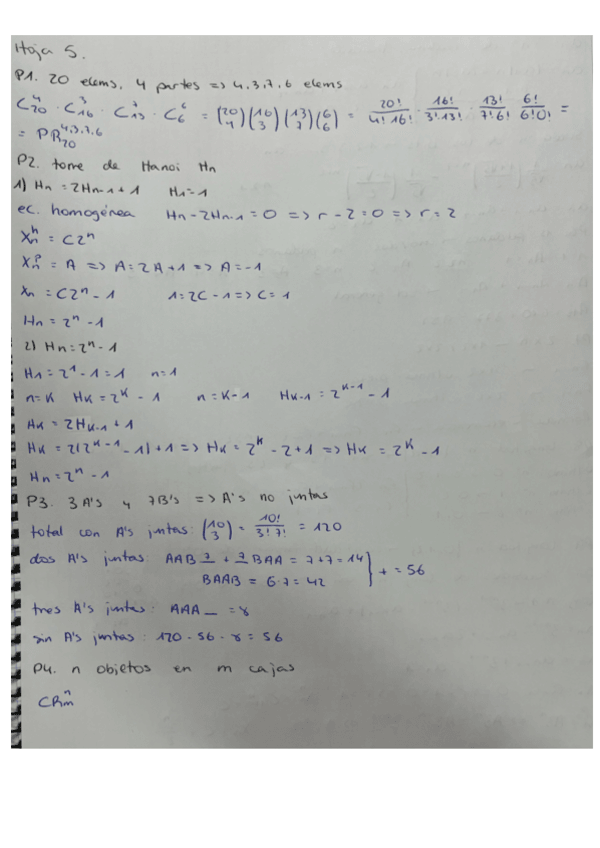 Hoja 5.
P1. 20 elems, 4 partes => 4,3,7,6 elems
C₂₀⁴ · C₁₆³ · C₁₃⁷ · C₆⁶ = (20 4)(16 3)(13 7)(6 6) = 20!/4!16! · 16!/3!13! · 13!/7!6! · 6!/6!0! =
= PR₂₀⁴,³,⁷,⁶
P2. torre de Hanoi Hn
1) Hn = 2Hn-1 + 1 H1 = 1
ec. homogénea Hn - 2Hn-1 = 0 => r - 2 = 0 => r = 2
Xnʰ = C2ⁿ
Xnᵖ = A => A = 2A + 1 => A = -1
Xn = C2ⁿ - 1 1 = 2C - 1 => C = 1
Hn = 2ⁿ - 1
2) Hn = 2ⁿ - 1
H1 = 2¹ - 1 = 1 n = 1
n = K HK = 2ᴷ - 1 n = K-1 HK-1 = 2ᴷ⁻¹ - 1
HK = 2HK-1 + 1
HK = 2(2ᴷ⁻¹ - 1) + 1 => HK = 2ᴷ - 2 + 1 => HK = 2ᴷ - 1
Hn = 2ⁿ - 1
P3. 3 A's y 7B's => A's no juntas
total con A's juntas: (10 3) = 10!/3!7! = 120
dos A's juntas: AAB 7 + 7 BAA = 7+7 = 14
BAAB = 6·7 = 42 } + = 56
tres A's juntas: AAA _ = 8
sin A's juntas: 120 - 56 - 8 = 56
P4. n objetos en m cajas
CRmⁿ